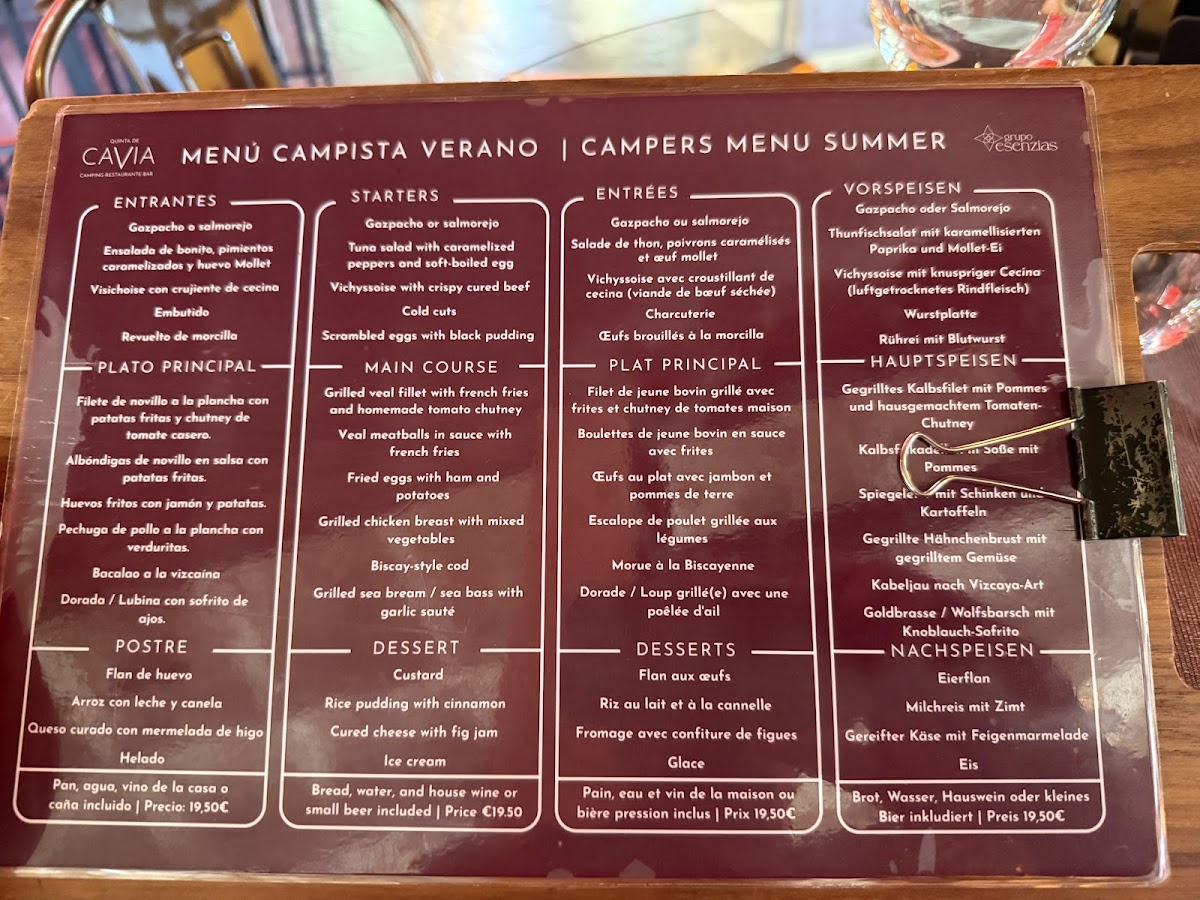 QUINTA DE
CAVIA
CAMPING·RESTAURANTE·BAR
MENÚ CAMPISTA VERANO | CAMPERS MENU SUMMER
grupo
esenzias
ENTRANTES
Gazpacho o salmorejo
Ensalada de bonito, pimientos
caramelizados y huevo Mollet
Visichoise con crujiente de cecina
Embutido
Revuelto de morcilla
PLATO PRINCIPAL
Filete de novillo a la plancha con
patatas fritas y chutney de
tomate casero.
Albóndigas de novillo en salsa con
patatas fritas.
Huevos fritos con jamón y patatas.
Pechuga de pollo a la plancha con
verduritas.
Bacalao a la vizcaína
Dorada / Lubina con sofrito de
ajos.
POSTRE
Flan de huevo
Arroz con leche y canela
Queso curado con mermelada de higo
Helado
Pan, agua, vino de la casa o
caña incluido | Precio: 19,50€
STARTERS
Gazpacho or salmorejo
Tuna salad with caramelized
peppers and soft-boiled egg
Vichyssoise with crispy cured beef
Cold cuts
Scrambled eggs with black pudding
MAIN COURSE
Grilled veal fillet with french fries
and homemade tomato chutney
Veal meatballs in sauce with
french fries
Fried eggs with ham and
potatoes
Grilled chicken breast with mixed
vegetables
Biscay-style cod
Grilled sea bream / sea bass with
garlic sauté
DESSERT
Custard
Rice pudding with cinnamon
Cured cheese with fig jam
Ice cream
Bread, water, and house wine or
small beer included | Price €19.50
ENTRÉES
Gazpacho ou salmorejo
Salade de thon, poivrons caramélisés
et œuf mollet
Vichyssoise avec croustillant de
cecina (viande de bœuf séchée)
Charcuterie
Œufs brouillés à la morcilla
PLAT PRINCIPAL
Filet de jeune bovin grillé avec
frites et chutney de tomates maison
Boulettes de jeune bovin en sauce
avec frites
Œufs au plat avec jambon et
pommes de terre
Escalope de poulet grillée aux
légumes
Morue à la Biscayenne
Dorade / Loup grillé(e) avec une
poêlée d'ail
DESSERTS
Flan aux œufs
Riz au lait et à la cannelle
Fromage avec confiture de figues
Glace
Pain, eau et vin de la maison ou
bière pression inclus | Prix 19,50€
VORSPEISEN
Gazpacho oder Salmorejo
Thunfischsalat mit karamellisierten
Paprika und Mollet-Ei
Vichyssoise mit knuspriger Cecina
(luftgetrocknetes Rindfleisch)
Wurstplatte
Rührei mit Blutwurst
HAUPTSPEISEN
Gegrilltes Kalbsfilet mit Pommes
und hausgemachtem Tomaten-
Chutney
Soße mit
Pommes
mit Schinken
Kartoffeln
Gegrillte Hähnchenbrust mit
gegrilltem Gemüse
Kabeljau nach Vizcaya-Art
Goldbrasse / Wolfsbarsch mit
Knoblauch-Sofrito
NACHSPEISEN
Eierflan
Milchreis mit Zimt
Gereifter Käse mit Feigenmarmelade
Eis
Brot, Wasser, Hauswein oder kleines
Bier inkludiert | Preis 19,50€